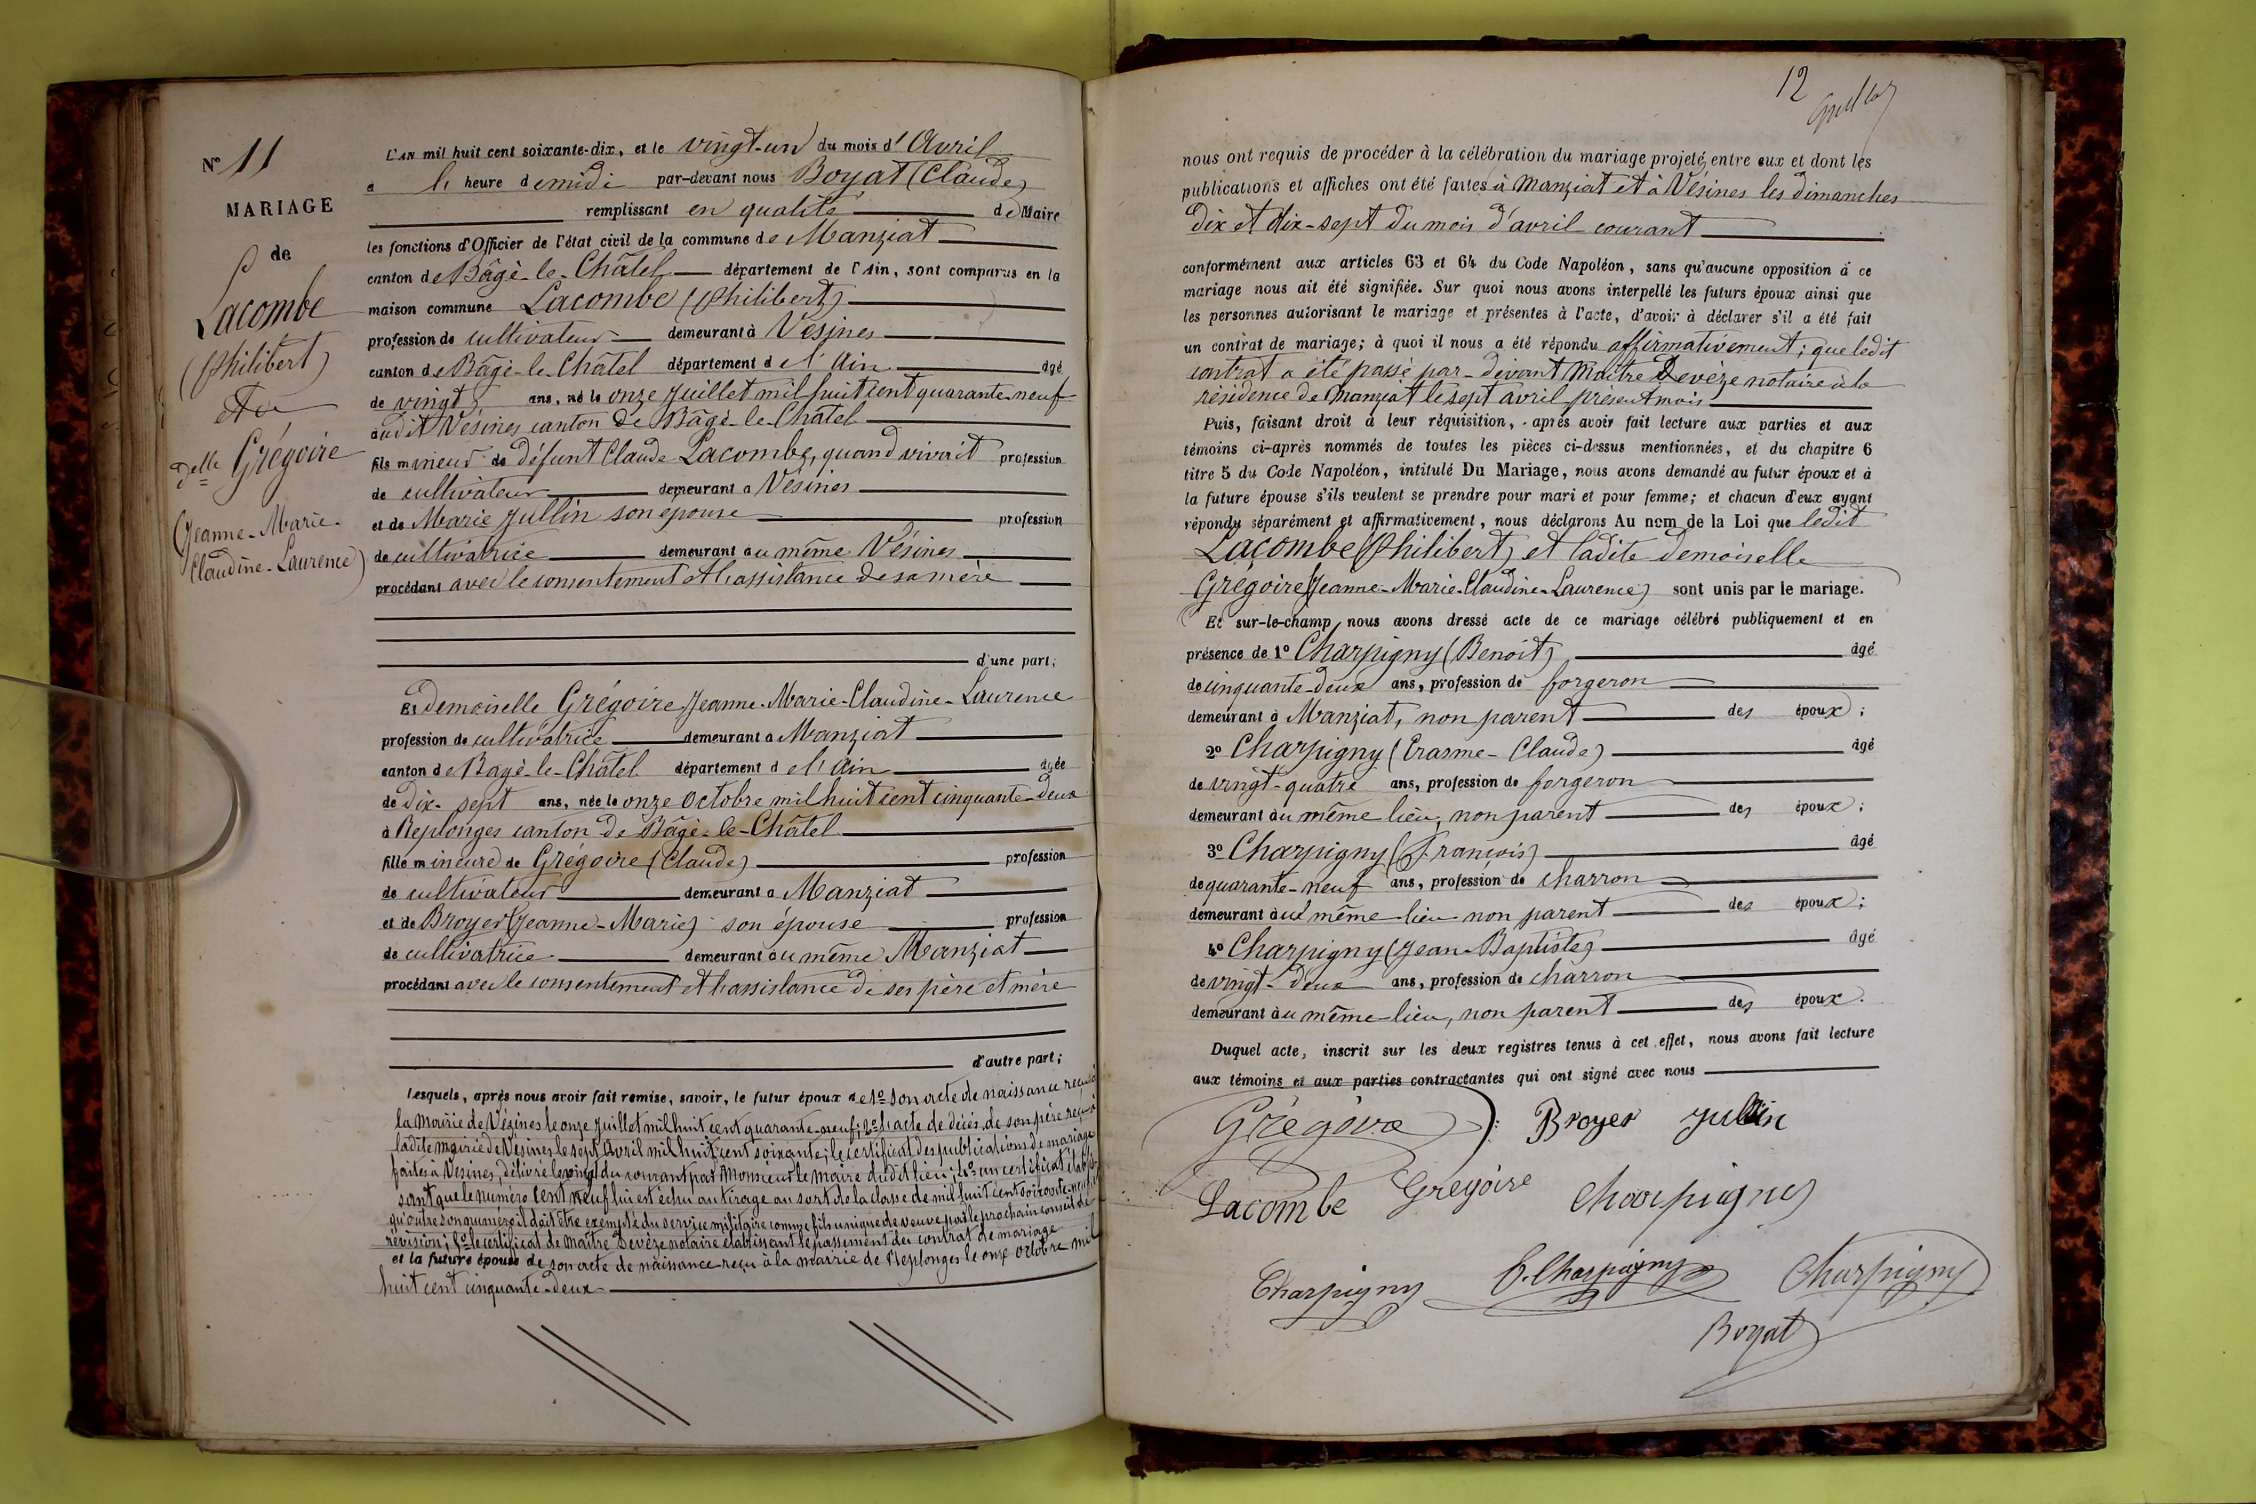 N° 11
MARIAGE
de
Lacombe
(Philibert)
et de
Delle Grégoire
(Jeanne-Marie-
Claudine-Laurence)
L'AN mil huit cent soixante-dix, et le vingt-un du mois d'Avril
a l' heure de midi par-devant nous Boyat (Claude)
remplissant en qualité de Maire
les fonctions d'Officier de l'état civil de la commune de Manziat
canton de Bâgé-le-Châtel département de l'Ain, sont comparus en la
maison commune Lacombe (Philibert)
profession de cultivateur demeurant à Vésines
canton de Bâgé-le-Châtel département de l'Ain âgé
de vingt ans, né le onze Juillet mil huit cent quarante-neuf
audit Vésines canton de Bâgé-le-Châtel
fils mineur de défunt Claude Lacombe, quand vivait profession
de cultivateur demeurant a Vésines
et de Marie Jullin son épouse profession
de cultivatrice demeurant au même Vésines
procédant avec le consentement et l'assistance de sa mère
d'une part;
Et demoiselle Grégoire Jeanne-Marie-Claudine-Laurence
profession de cultivatrice demeurant a Manziat
canton de Bagé-le-Châtel département de l'Ain âgée
de dix-sept ans, née le onze Octobre mil huit cent cinquante-deux
à Replonges canton de Bâgé-le-Châtel
fille mineure de Grégoire (Claude) profession
de cultivateur demeurant a Manziat
et de Broyer (Jeanne-Marie) son épouse profession
de cultivatrice demeurant au même Manziat
procédant avec le consentement et l'assistance de ses père et mère
d'autre part;
Lesquels, après nous avoir fait remise, savoir, le futur époux de 1° son acte de naissance reçu à
la mairie de Vésines le onze Juillet mil huit cent quarante-neuf; 2° l'acte de décès de son père reçu à
ladite mairie de Vésines le sept Avril mil huit cent soixante; le certificat des publications de mariage
faites à Vésines, délivré le vingt du courant par Monsieur le Maire dudit lieu; 4° un certificat établis-
sant que le numéro cent neuf lui est échu au tirage au sort de la classe de mil huit cent soixante-neuf
qu'outre son numéro il doit être exempté du service militaire comme fils unique de veuve par le prochain conseil de
révision; 5° le certificat de Maître Devèze notaire établissant le passement du contrat de mariage
et la future épouse de son acte de naissance reçu à la mairie de Replonges le onze octobre mil
huit cent cinquante-deux
12
nous ont requis de procéder à la célébration du mariage projeté entre eux et dont les
publications et affiches ont été faites à Manziat et à Vésines les dimanches
dix et dix-sept du mois d'avril courant
conformément aux articles 63 et 64 du Code Napoléon, sans qu'aucune opposition à ce
mariage nous ait été signifiée. Sur quoi nous avons interpellé les futurs époux ainsi que
les personnes autorisant le mariage et présentes à l'acte, d'avoir à déclarer s'il a été fait
un contrat de mariage; à quoi il nous a été répondu affirmativement; que ledit
contrat a été passé par-devant Maître Devèze notaire à la
résidence de Manziat le sept avril présent mois
Puis, faisant droit à leur réquisition, après avoir fait lecture aux parties et aux
témoins ci-après nommés de toutes les pièces ci-dessus mentionnées, et du chapitre 6
titre 5 du Code Napoléon, intitulé Du Mariage, nous avons demandé au futur époux et à
la future épouse s'ils veulent se prendre pour mari et pour femme; et chacun d'eux ayant
répondu séparément et affirmativement, nous déclarons Au nom de la Loi que ledit
Lacombe (Philibert) et ladite demoiselle
Grégoire (Jeanne-Marie-Claudine-Laurence) sont unis par le mariage.
Et sur-le-champ nous avons dressé acte de ce mariage célébré publiquement et en
présence de 1° Charpigny (Benoit) âgé
de cinquante-deux ans, profession de forgeron
demeurant à Manziat, non parent des époux;
2° Charpigny (Erasme-Claude) âgé
de vingt-quatre ans, profession de forgeron
demeurant au même lieu, non parent des époux;
3° Charpigny (François) âgé
de quarante-neuf ans, profession de charron
demeurant au même lieu non parent des époux;
4° Charpigny (Jean-Baptiste) âgé
de vingt-deux ans, profession de charron
demeurant au même lieu, non parent des époux.
Duquel acte, inscrit sur les deux registres tenus à cet effet, nous avons fait lecture
aux témoins et aux parties contractantes qui ont signé avec nous
Grégoire Broyer Jullin
Lacombe Gregoire Charpigny
Charpigny C. Charpigny Charpigny
Boyat